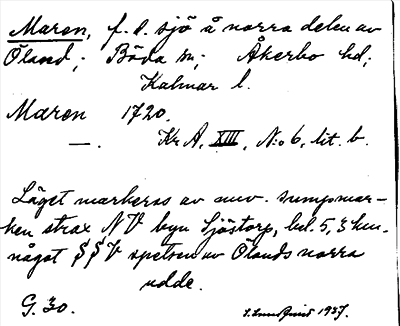 Maren, f. d. sjö å norra delen av
Öland; Böda sn; Åkerbo hd;
Kalmar l.
Maren 1720.
—. Kr. A, XIII, N:o 6, lit. b.
Läget markeras av nuv. sumpmar-
ken strax NV byn Sjöstorp, bel. 5,3 km.
något SSV spetsen av Ölands norra
udde.
G. 30.
1937.